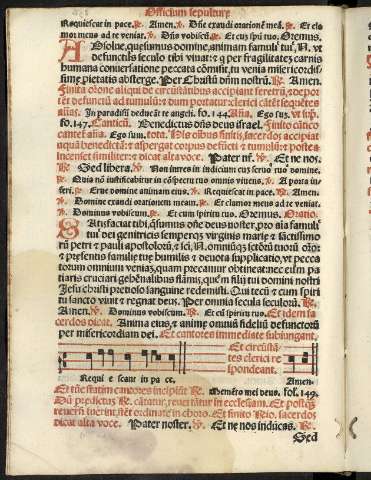 Officium sepulture
Requiescat in pace. ℟. Amen. ℣. Dñe exaudi orationē meā. ℟. Et cla
mor meus ad te veniat. ℣. Dñs vobiscū. ℟. Et cū spū tuo. Oremus.
Absolue, quesumus domine, animam famuli tui, N. vt
defunctus seculo tibi viuat: & que per fragilitatē carnis
humana conuersatione peccata cōmisit, tu venia misericordis/
sime pietatis absterge. Per Christū dñm nostrū. ℟. Amen.
Finita orōne aliqui de circūstātibus accipiant feretrū, & depor
tēt defunctū ad tumulū: & dum portatur clerici cātēt sequētes
añas. In paradisū deducāt te angeli. fo. 144. Aña. Ego sum. vt
fo. 147. Canticū. Benedictus dñs deus israel. Finito cātico
cantēt añā. Ego sum. tota. His oībus finitis, sacerdos accipiat
aquā benedictā: & aspergat corpus defūcti & tumulū: & postea
incenset similiter: & dicat alta voce. Pater nr̄. ℣. Et ne nos.
℟. Sed libera. ℣. Non intres in iudicium cum seruo tuo domine.
℟. Quia nō iustificabitur in cōspectu tuo omnis viuens. ℣. A porta in
feri. ℟. Erue domine animam eius. ℣. Requiescat in pace. ℟. Amen.
℣. Domine exaudi orationem meam. ℟. Et clamor meus ad te veniat.
℣. Dominus vobiscum. ℟. Et cum spiritu tuo. Oremus. Oratio.
Satisfaciat tibi, q̄sumus dñe deus noster, pro aīa famuli
tui dei genitricis semperq̄; virginis marie & sāctissimo
rū petri & pauli apostolorū, & sci, N. omniūq̄; sctōrū tuorū orō:
& presentis familie tue humilis & deuota supplicatio, vt pecca
torum omnium veniā, quam precamur obtineat: nec eū pa
tiaris cruciari gehēnalibus flāmis, quē Filij tui domini nostri
Jesu christi precioso sanguine redemisti. Qui tecū & cum spiri
tu sancto viuit & regnat deus. Per omnia secula seculorū. ℟.
Amen. ℣. Dominus vobiscum. ℟. Et cū spiritu tuo. Et idem sa
cerdos dicat. Anima eius, & anime omniū fideliū defunctorū
per misericordiam dei. Et cantores immediate subiungant,
Et circūstā/
tes clerici re
spondeant.
Requi e scant in pa ce. Amen.
Et tūc statim cantores incipiūt ℟. Memēto mei deus. fol. 149.
Dū predictū ℟. cātatur, reuertātur in ecclesiam. Et postq̄;
reuersi fuerint, stēt ordinate in choro. Et finito ℟io, sacerdos
dicat alta voce. Pater noster. ℣. Et ne nos inducas. ℟.
Sed